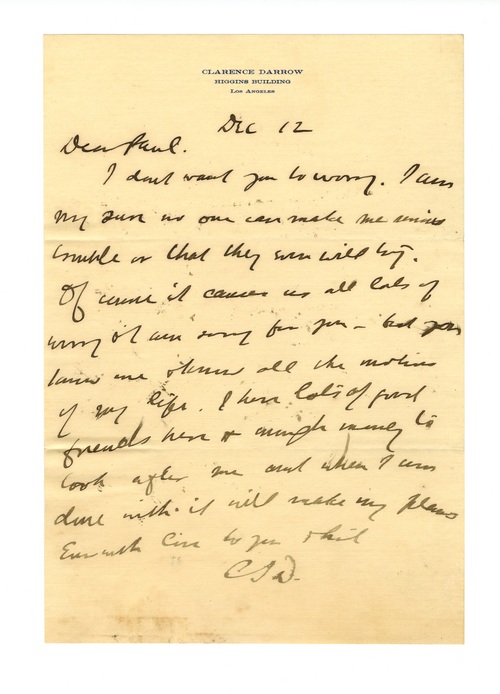 CLARENCE DARROW
HIGGINS BUILDING
LOS ANGELES
Dec 12
Dear Paul.
I dont want you to worry. I am
very sure no one can make me serious
trouble or that they ever will try.
Of course it causes us all lots of
worry & I am sorry for you – but you
know me & know all the motives
of my life. I have lots of good
friends here & enough money to
look after me and when I am
done with it will make my plans
Ever with love to you &
C S D.